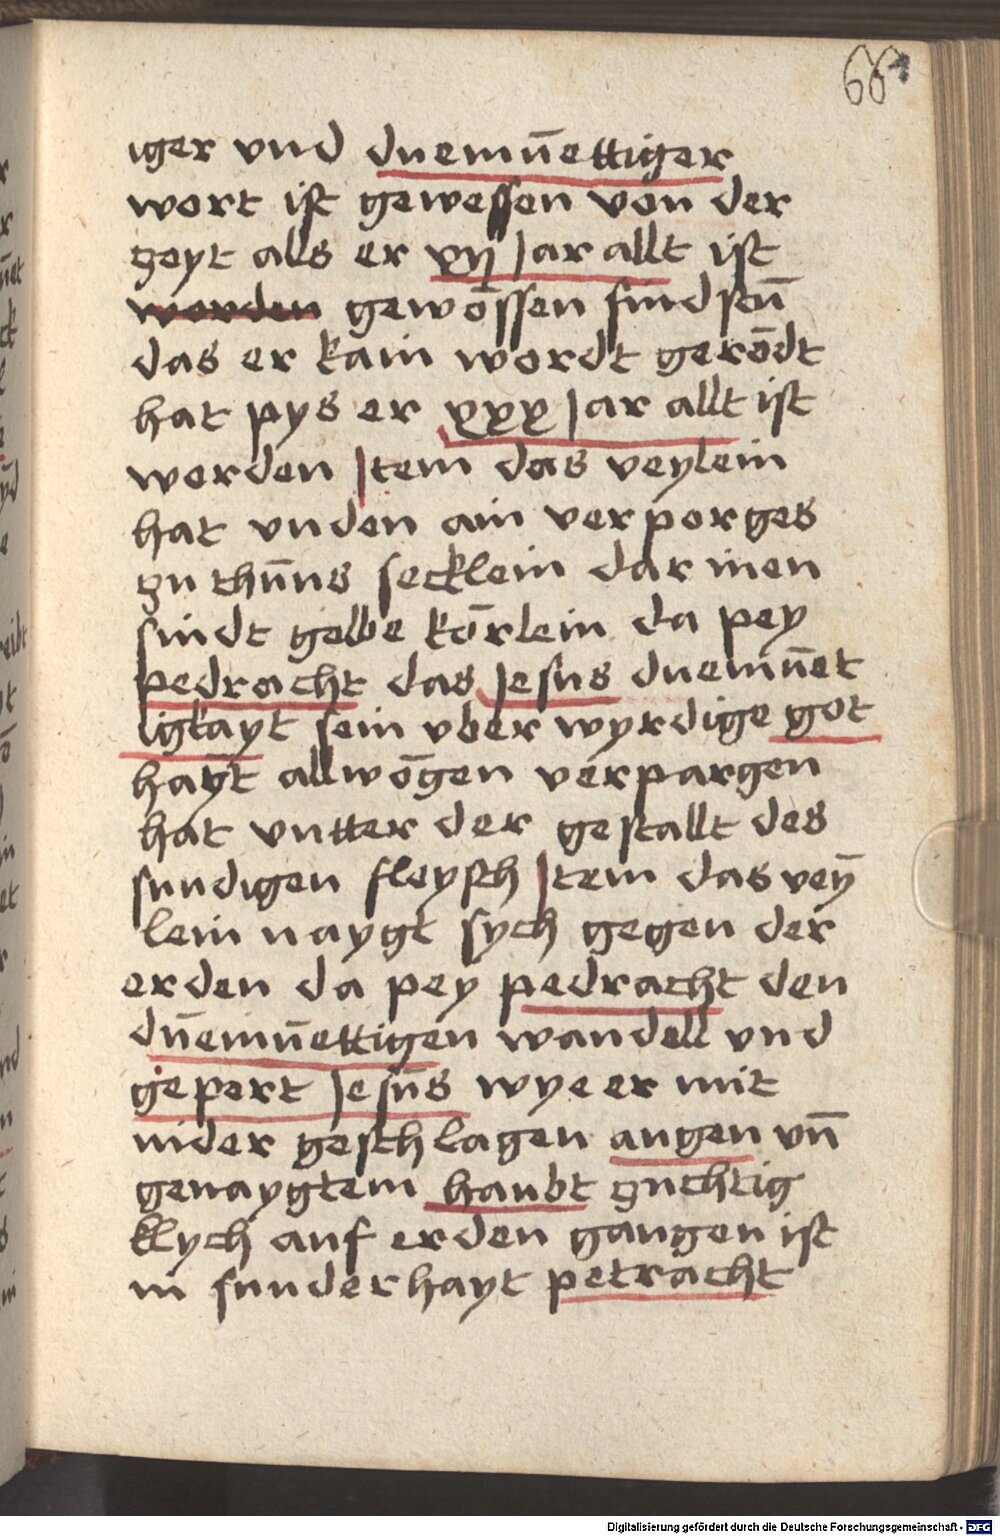 66
iger vnd duemūettiger
wort ist gewessen von der
zeyt alls er xij Jar allt ist
worden gewössen sindseū
das er kain wordt gerödt
hat pys er xxx Jar allt ist
worden Jtem das veylein
hat vnden ain verporges
zu thūns secklein dar inen
sindt gelbe körlein da pey
pedracht das Jesus duemūet
igkayt sein vber wyrdige got
hayt allwögen verpargen
hat vntter der gestallt des
sundigen fleysch Jtem das veÿ
lein naygt sych gegen der
erden da pey pedracht den
dūemūettigen wandell vnd
gepert Jesūs wye er mit
nider geschlagen augen vn̄
genaygtem haubt zuchtig
klych auf erden gangen ist
in sunderhayt petracht
Digitalisierung gefördert durch die Deutsche Forschungsgemeinschaft - DFG